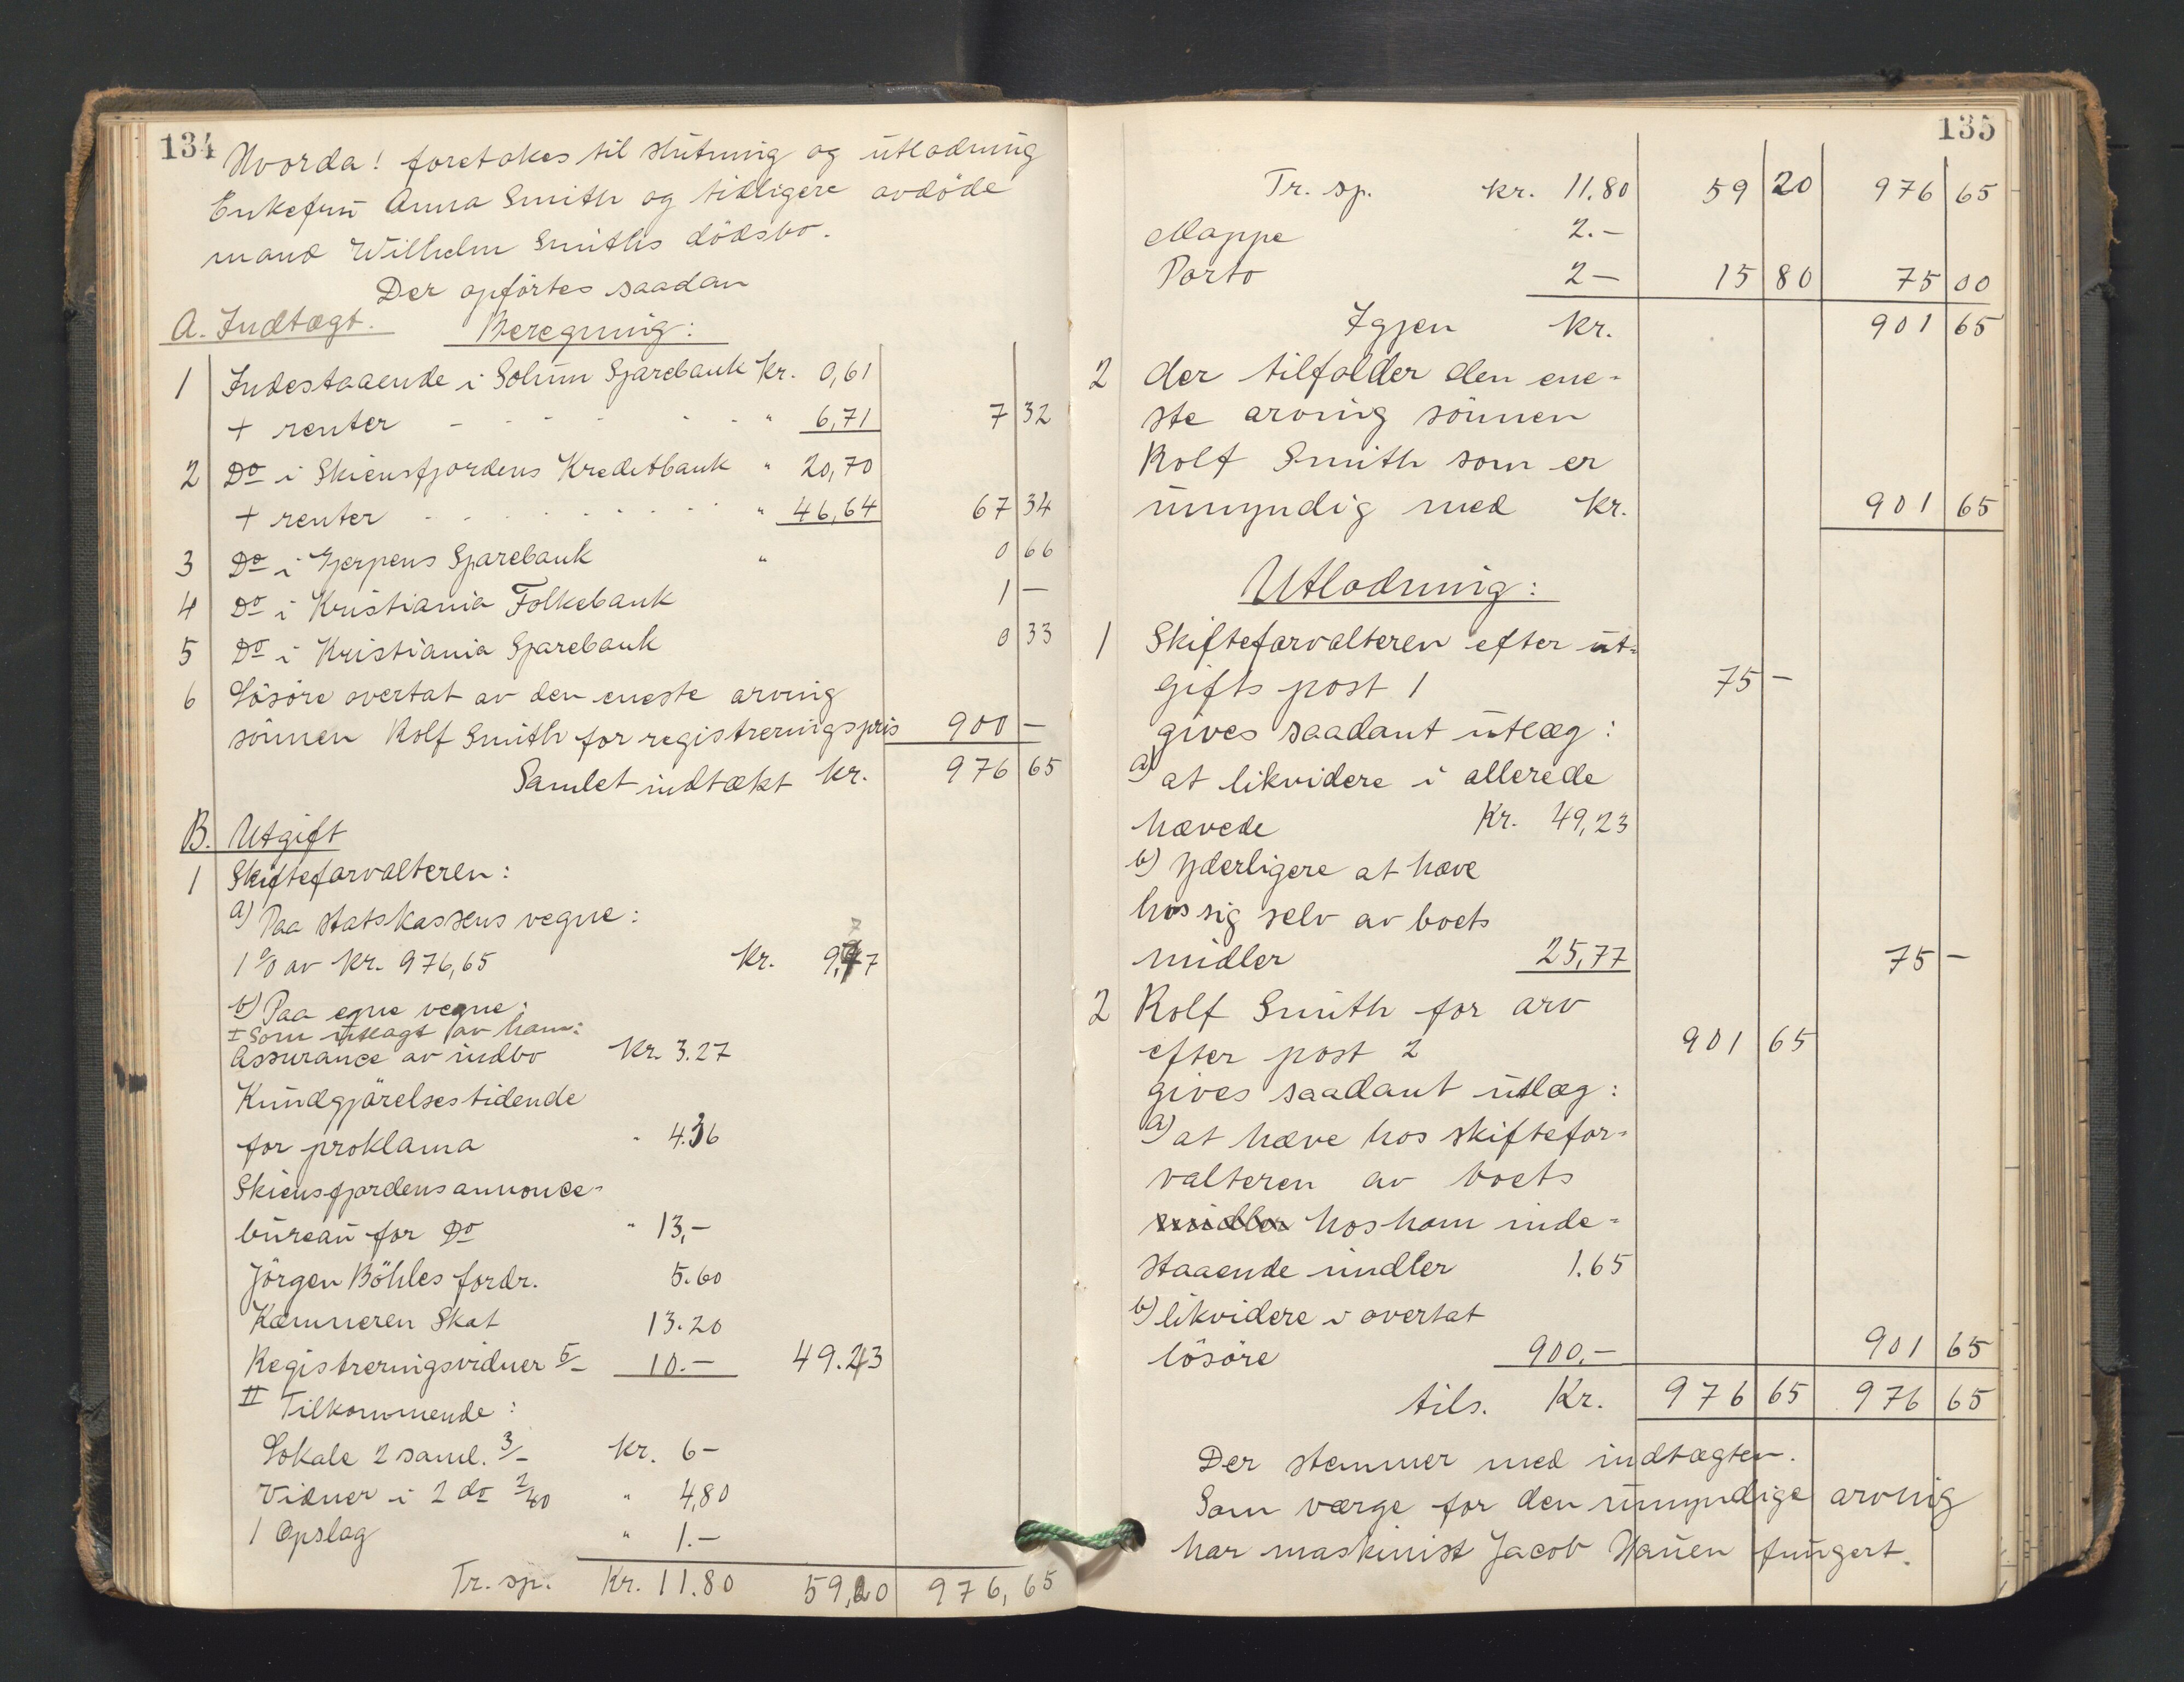 134
Hvorda! foretokes til slutning og utlodning
Enkefru Anna Smith og tidligere avdöde
mand Wilhelm Smiths dödsbo.
Der opförtes saadan
A. Indtægt. Beregning:
1 Indestaaende i Solum Sparebank Kr. 0,61
+ renter - - - - - " 6,71 7 32
2 Do i Skiensfjordens Kreditbank " 20,70
+ renter - - - - - - - - " 46,64 67 34
3 Do i Gjerpens Sparebank " 0 66
4 Do i Kristiania Folkebank 1 —
5 Do i Kristiania Sparebank 0 33
6 Lösöre overtat av den eneste arving
sönnen Rolf Smith for registreringspris 900 —
Samlet indtækt kr. 976 65
B. Utgift
1 Skifteforvalteren:
a) Paa statskassens vegne:
1 % av kr. 976,65 kr. 9,77
b) Paa egne vegne:
I Som utlagt av ham:
Assurance av indbo Kr. 3.27
Kundgjörelsestidende
for proklama " 4.36
Skiensfjordens annonce-
bureau for Do " 13,-
Jörgen Böhles fordr. 5.60
Kæmneren Skat 13.20
Registreringsvidner 5/- 10.- 49.43
II Tilkommende:
Lokale 2 saml. 3/- kr. 6-
Vidner i 2 do 2/40 " 4,80
1 Opslag " 1.-
Tr. sp. Kr. 11.80 59,20 976,65
135
Tr. sp. kr. 11.80 59 20 976 65
Mappe 2.-
Porto 2- 15 80 75 00
Igjen kr. 901 65
2 der tilfalder den ene-
ste arving sönnen
Rolf Smith som er
umyndig med kr. 901 65
Utlodning:
1 Skifteforvalteren efter ut-
gifts post 1 75 -
gives saadant utlæg:
a) at likvidere i allerede
hævede Kr. 49,23
b) Yderligere at hæve
hos sig selv av boets
midler 25,77 75 -
2 Rolf Smith for arv
efter post 2 901 65
gives saadant utlæg:
a) at hæve hos skiftefor-
valteren av boets
midler hos ham inde-
staaende midler 1.65
b) likvidere i overtat
lösöre 900,- 901 65
tils. Kr. 976 65 976 65
Der stemmer med indtægten.
Som værge for den umyndige arving
har maskinist Jacob Hauen fungert.